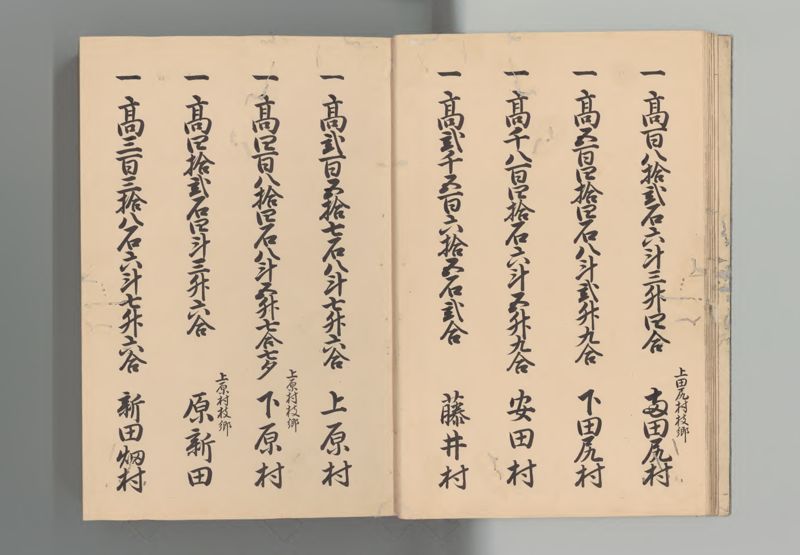 一 高百八拾弐石六斗三升四合
上田尻村枝郷
南田尻村
一 高五百四拾四石八斗弐升九合 下田尻村
一 高千八百四拾石六斗五升九合 安田村
一 高弐千五百六拾五石弐合 藤井村
一 高弐百五拾七石八斗七升六合 上原村
一 高四百八拾四石八斗五升七合七夕
上原村枝郷
下原村
一 高四拾弐石四斗三升六合
上原村枝郷
原新田
一 高三百三拾八石六斗七升六合 新田畑村